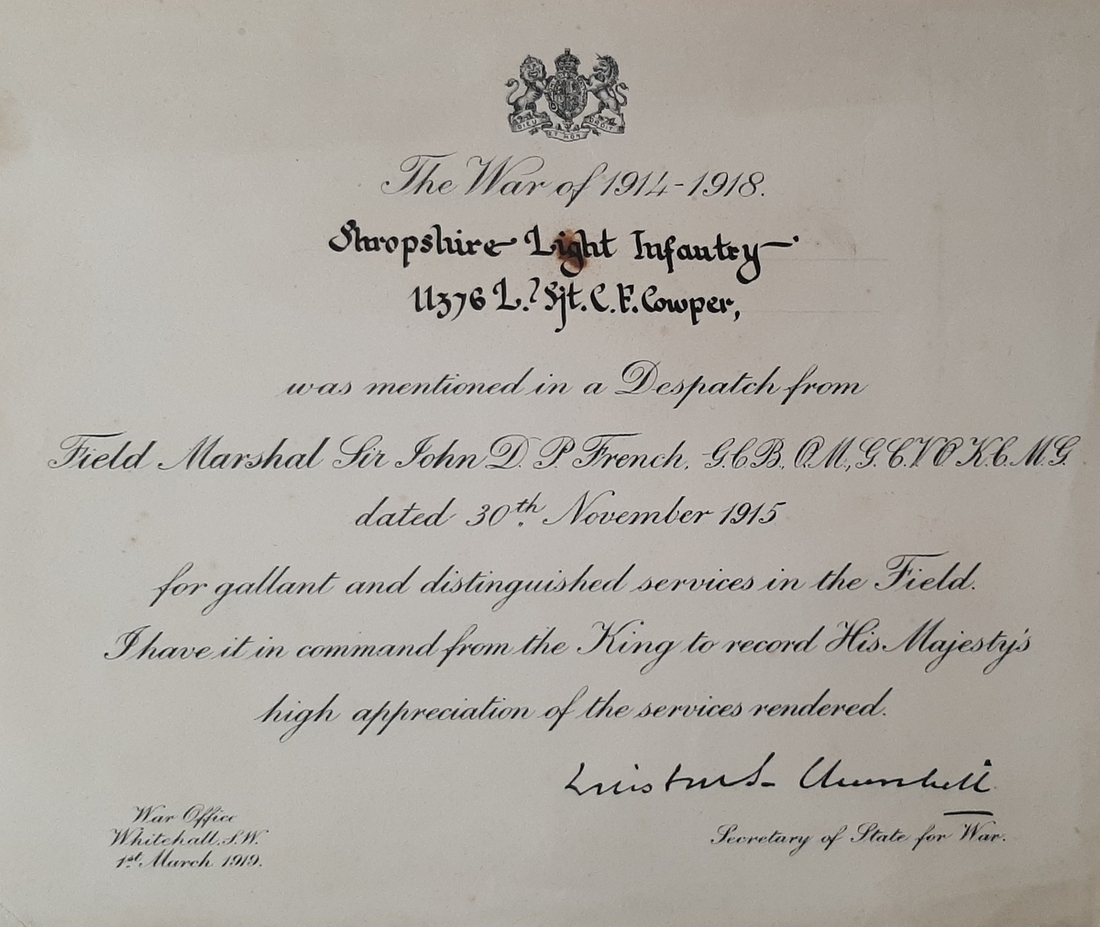 DIEU ET MON DROIT
The War of 1914-1918.
Shropshire Light Infantry
11376 L.ᵗ Sjt. C. F. Cowper,
was mentioned in a Despatch from
Field Marshal Sir John D. P. French, G.C.B., O.M., G.C.V.O. K.C.M.G.
dated 30th November 1915
for gallant and distinguished services in the Field.
I have it in command from the King to record His Majesty's
high appreciation of the services rendered.
Winston S. Churchill
War Office
Whitehall, S.W.
1st March 1919.
Secretary of State for War.